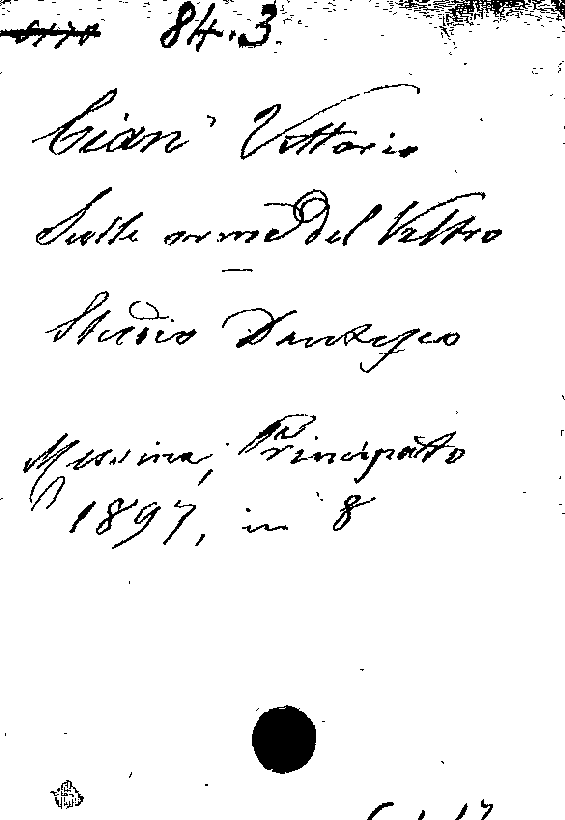 84.3
Cian Vittorio
Sulle orme del Veltro
Studio Dantesco
Messina, Principato
1897, in 8